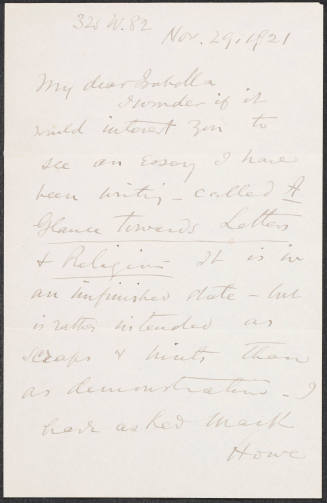 325 W. 82
Nov. 29. 1921
My dear Isabella
I wonder if it
would interest you to
see an Essay I have
been writing - called A
Glance towards Letters
& Religion - It is in
an unfinished state - but
is rather intended as
scraps & hints than
as demonstration - I
have asked Mark
Howe